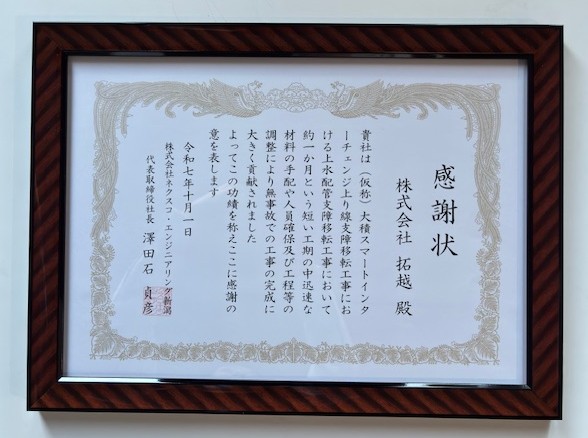 感謝状
株式会社 拓越 殿
貴社は(仮称)大積スマートインタ
ーチェンジ上り線支障移転工事にお
ける上水配管支障移転工事において
約一か月という短い工期の中迅速な
材料の手配や人員確保及び工程等の
調整により無事故での工事の完成に
大きく貢献されました
よってこの功績を称えここに感謝の
意を表します
令和七年十月一日
株式会社ネクスコ・エンジニアリング新潟
代表取締役社長 澤田石 貞彦